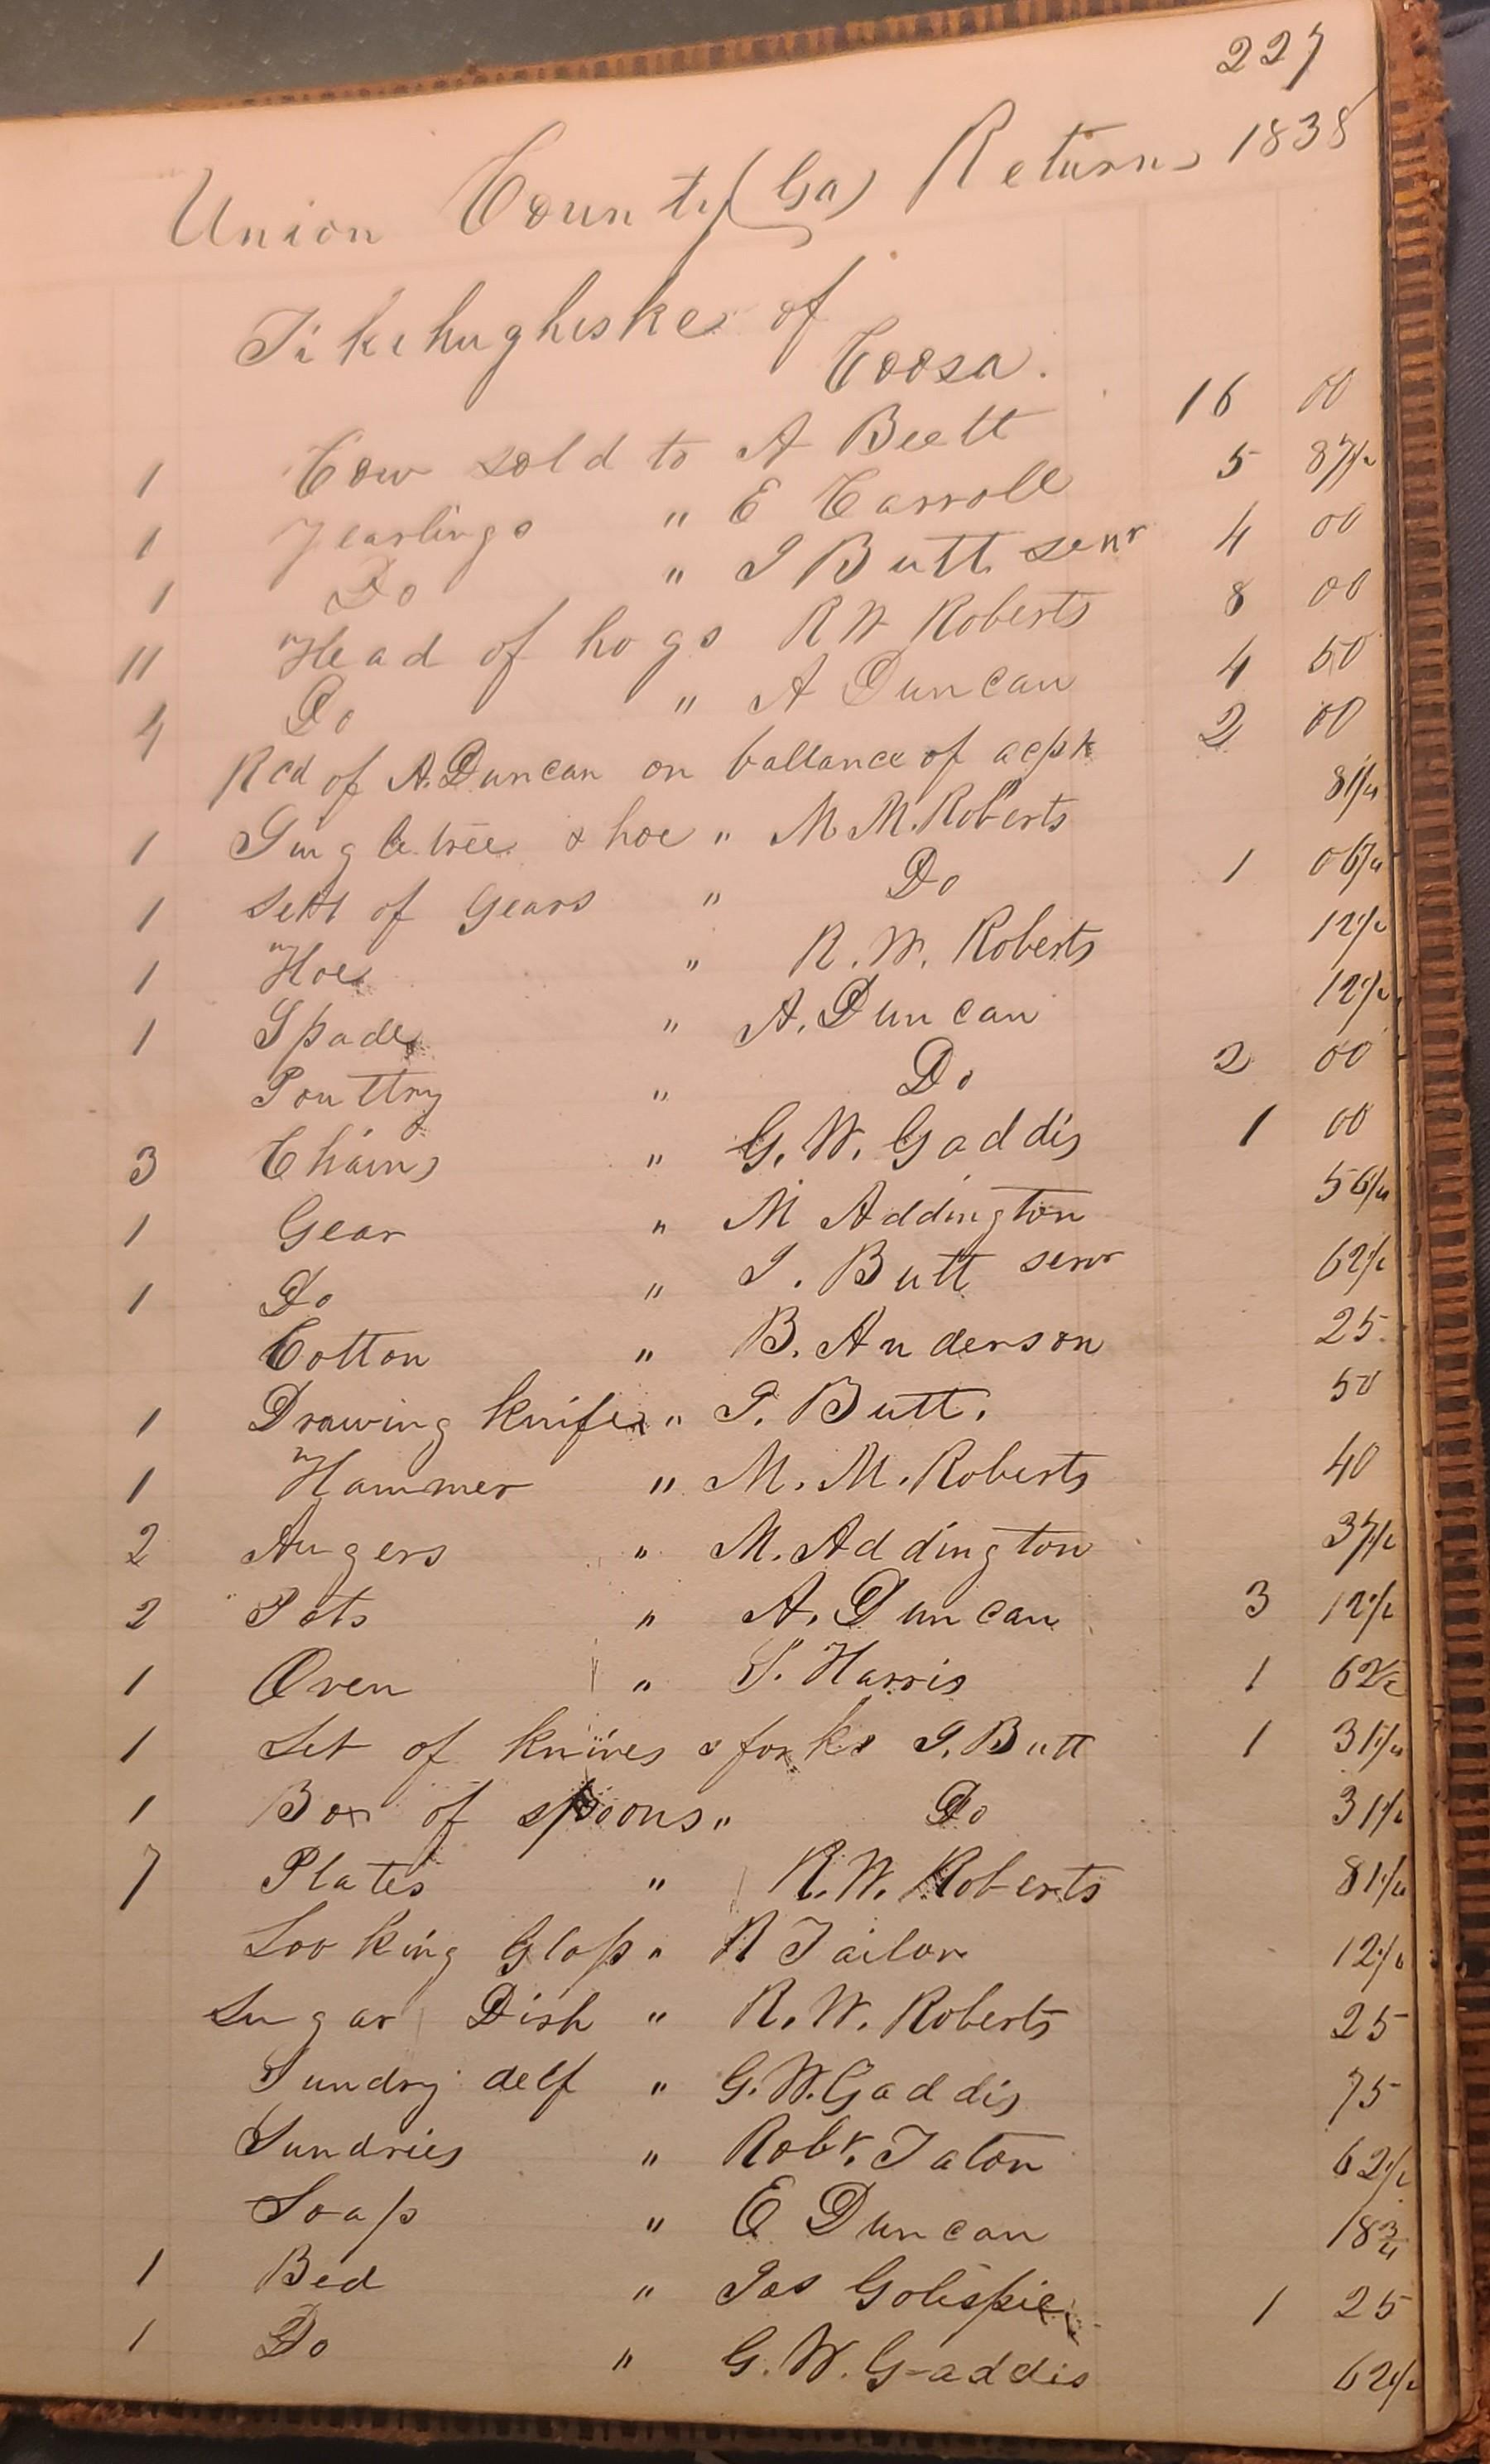 227
Union County (Ga) Returns 1838
Tikehugheske of
Coosa.
1 Cow sold to A Beett 16 00
1 Yearlings " E Carroll 5 87½
1 Do " J Butt senr 4 00
11 Head of hogs R W Roberts 8 00
4 Do " A Duncan 4 50
Rcd of A. Duncan on ballance of acpt 2 00
1 Singletree & hoe " M M. Roberts 81¼
1 Sett of Gears " Do 1 06¼
1 Hoe " R. W. Roberts 12½
1 Spade " A. Duncan 12½
Poultry " Do 2 00
3 Chains " G. W. Gaddis 1 00
1 Gear " M Addington 56¼
1 Do " J. Butt senr 62½
Cotton " B. Anderson 25
1 Drawing knife " J. Butt. 50
1 Hammer " M. M. Roberts 40
2 Augers " M. Addington 37½
2 Pots " A. Duncan 3 12½
1 Oven " S. Harris 1 62½
1 Set of knives & forks J. Butt 1 31¼
1 Box of spoons " Do 31¼
7 Plates " R. W. Roberts 81¼
Looking Glass " R Tailor 12½
Sugar Dish " R. W. Roberts 25
Sundry delf " G. W. Gaddis 75
Sundries " Robt. Tator 62½
Soap " E Duncan 18¾
1 Bed " Jas Golispie 1 25
1 Do " G. W. Gaddis 62½